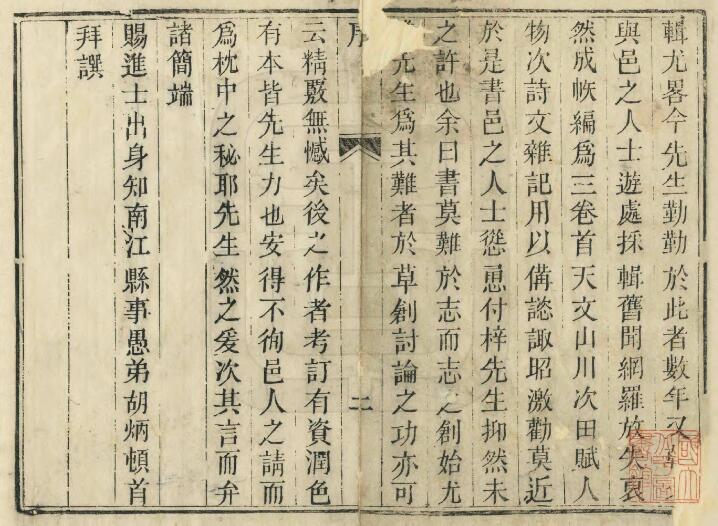 輯尤畧今先生勤勤於此者數年又
與邑之人士遊處採輯舊聞網羅放失裒
然成帙編爲三卷首天文山川次田賦人
物次詩文雜記用以備諮諏昭激勸莫近
於是書邑之人士慫恿付梓先生抑然未
之許也余曰書莫難於志而志之創始尤
先生爲其難者於草創討論之功亦可
序
二
云精覈無憾矣後之作者考訂有資潤色
有本皆先生力也安得不徇邑人之請而
爲枕中之秘耶先生然之爰次其言而弁
諸簡端
賜進士出身知南江縣事愚弟胡炳頓首
拜譔